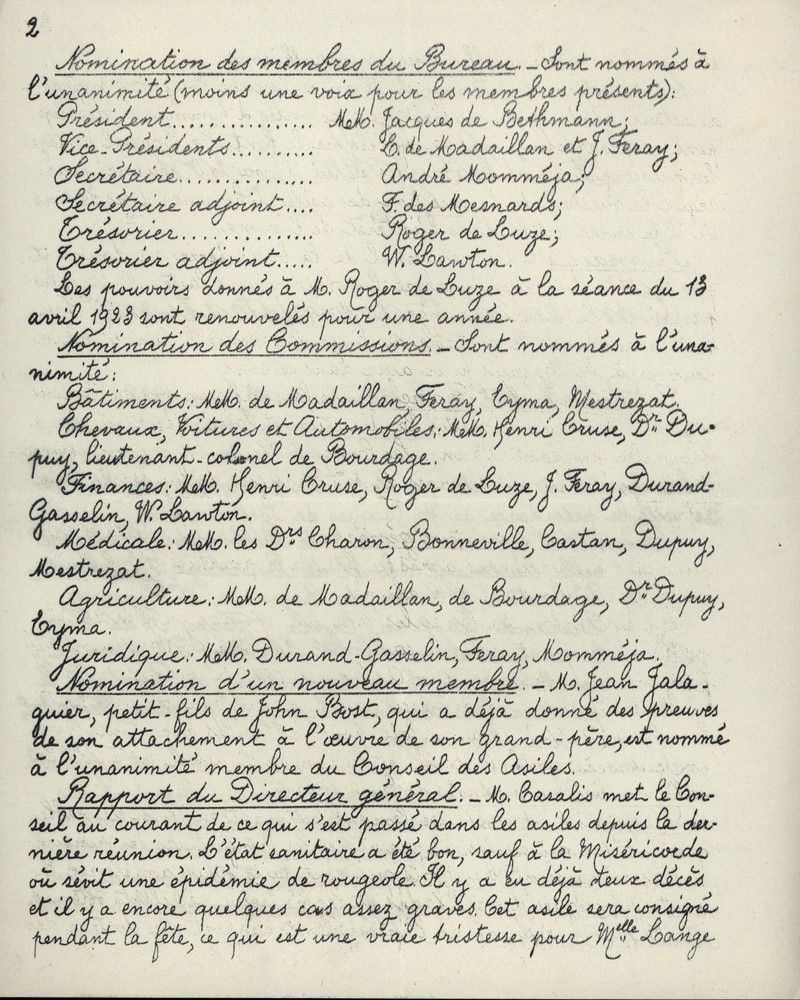 2
Nomination des membres du Bureau. – Sont nommés à
l'unanimité (moins une voix pour les membres présents):
Président................ MeM. Jacques de Bethmann;
Vice-Présidents.......... E. de Madaillan et J. Feray;
Secrétaire............... André Momméja;
Secrétaire adjoint.... F. des Mesnards;
Trésorier............... Roger de Luze;
Trésorier adjoint..... W. Lawton.
Les pouvoirs donnés à M. Roger de Luze à la séance du 13
avril 1923 sont renouvelés pour une année.
Nomination des Commissions. – Sont nommés à l'una-
nimité:
Bâtiments: MeM. de Madaillan, Feray, Eyma, Mestrezat.
Chevaux, Voitures et Automobiles: MeM. Henri Cruse, Dr. Du-
puy, lieutenant-colonel de Bourdage.
Finances: MeM. Henri Cruse, Roger de Luze, J. Feray, Durand-
Gasselin, W. Lawton.
Médicale: MeM. les Drs Charon, Bonneville, Castan, Dupuy,
Mestrezat.
Agriculture: MeM. de Madaillan, de Bourdage, Dr. Dupuy,
Eyma.
Juridique: MeM. Durand-Gasselin, Feray, Momméja.
Nomination d'un nouveau membre. – M. Jean Jala-
guier, petit-fils de John Bost, qui a déjà donné des preuves
de son attachement à l'œuvre de son grand-père, est nommé
à l'unanimité membre du Conseil des Asiles.
Rapport du Directeur général. – M. Casalis met le Con-
seil au courant de ce qui s'est passé dans les asiles depuis la der-
nière réunion. L'état sanitaire a été bon, sauf à la Miséricorde
où sévit une épidémie de rougeole. Il y a eu déjà deux décès
et il y a encore quelques cas assez graves. Cet asile sera consigné
pendant la fête, ce qui est une vraie tristesse pour Melle Lange